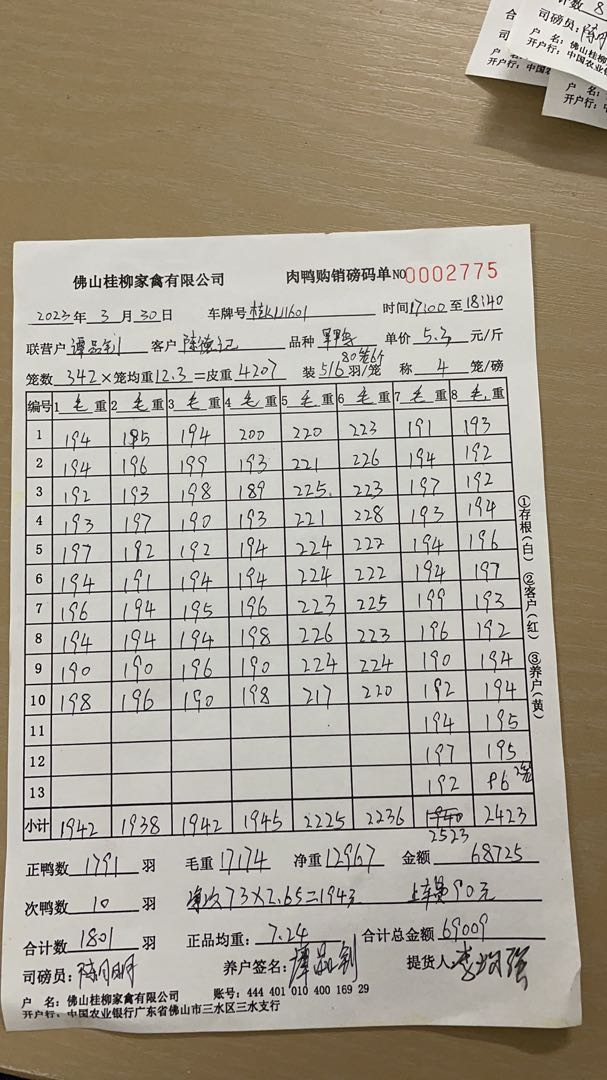 计数 8
合
司磅员：
司
户 名：佛山桂柳
开户行：中国农业
户
开户行：中国农
户 名：
开户行：中
佛山桂柳家禽有限公司 肉鸭购销磅码单 NO 0002775
2023 年 3 月 30 日 车牌号 时间 17:00 至 18:40
联营户 谭品钊 客户 陈德记 品种 单价 5.3 元/斤
笼数 342 × 笼均重 12.3 = 皮重 4207 装 5 16 羽/笼 称 4 笼/磅
编号 1 毛 重 2 毛 重 3 毛 重 4 毛 重 5 毛 重 6 毛 重 7 毛 重 8 毛 重
1 194 195 194 200 220 223 191 193
2 194 196 199 193 221 226 194 192
3 192 193 198 189 225 223 197 192
4 193 197 190 193 221 228 193 194
5 197 192 192 194 224 222 194 196
6 194 191 194 194 224 222 194 197
7 196 194 195 196 223 225 199 193
8 194 194 194 198 226 223 196 192
9 190 190 196 190 224 224 190 194
10 198 196 190 198 217 220 192 194
11 194 195
12 197 195
13 192 86 2笼
小计 1942 1938 1942 1945 2225 2236 1940 2423
2523
正鸭数 1791 羽 毛重 17174 净重 12967 金额 68725
次鸭数 10 羽 73×2.65=194元 上车费90元
合计数 1801 羽 正品均重：7.24 合计总金额 69009
司磅员：陈月明 养户签名：谭品钊 提货人：
户 名：佛山桂柳家禽有限公司 账号：444 401 010 400 169 29
开户行：中国农业银行广东省佛山市三水区三水支行
①存根（白） ②客户（红） ③养户（黄）